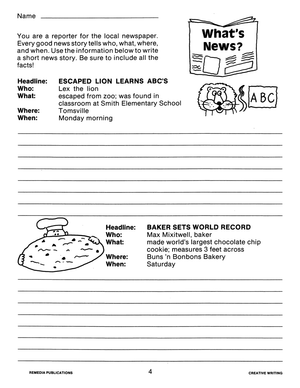 Name
What's
News?
You are a reporter for the local newspaper.
Every good news story tells who, what, where,
and when. Use the information below to write
a short news story. Be sure to include all the
facts!
Headline: ESCAPED LION LEARNS ABC'S
Who: Lex the lion
What: escaped from zoo; was found in
classroom at Smith Elementary School
Where: Tomsville
When: Monday morning
A B C
Headline: BAKER SETS WORLD RECORD
Who: Max Mixitwell, baker
What: made world's largest chocolate chip
cookie; measures 3 feet across
Where: Buns 'n Bonbons Bakery
When: Saturday
REMEDIA PUBLICATIONS 4 CREATIVE WRITING